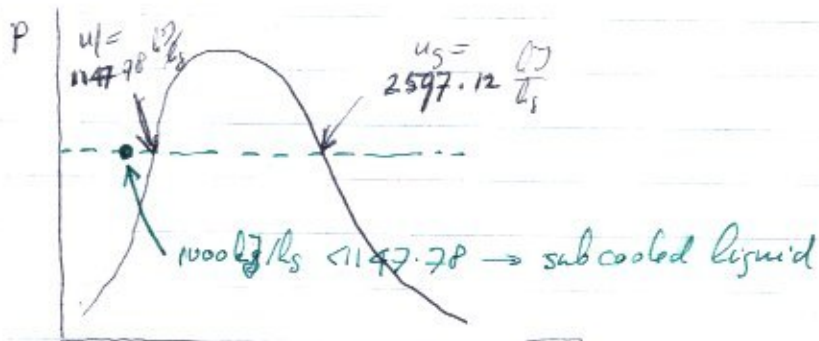 P
uf =
1147.78 kJ/kg
ug =
2597.12 kJ/kg
1000 kJ/kg < 1147.78 → subcooled liquid